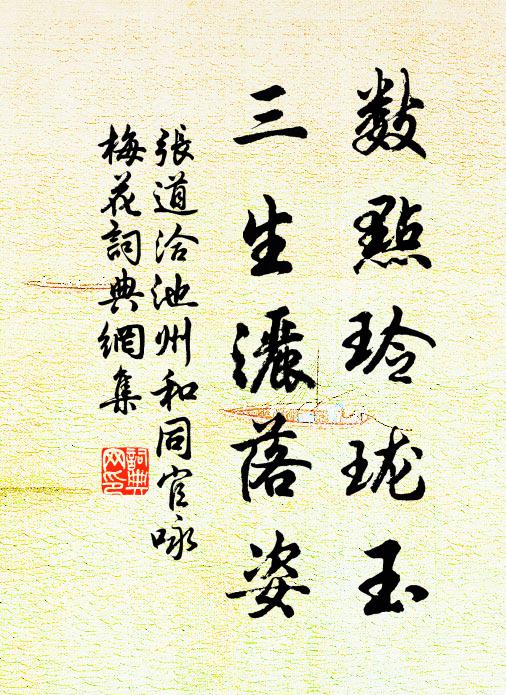 数點玲珑玉
三生灑落姿
張道洽池州和同官咏
梅花詞典網集
詞典
网印